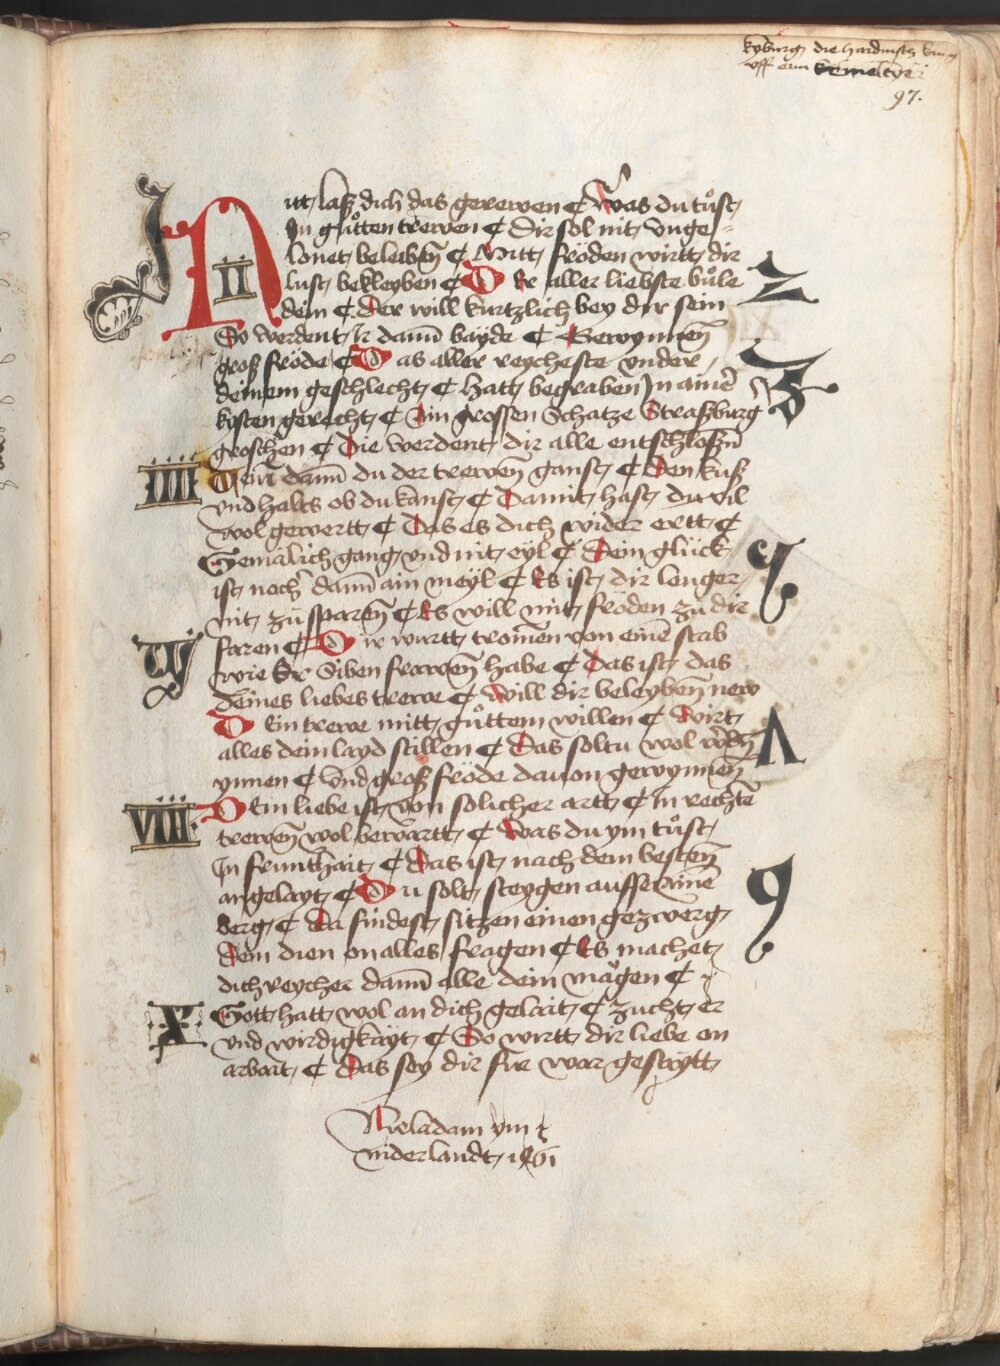 kyburg die hardnisch
uff ein
97.
I
Nitt laß dich das gerewen ¢ Was du tůst
In gůtten trewen ¢ Dir sol nit unge-
II
lonet beleibñ ¢ Mitt fröden wirtt dir
lust bekleyben ¢ Der aller liebste bůle
2
dein ¢ Der will kurtzlich bey dir sein
So werdent Ir dañ bayde ¢ Gewynneñ
groß fröde ¢ Das aller reycheste under
3
deinem geschlecht ¢ Hatt begraben In ainē
kosten gerecht ¢ Ain grossen Schatze Straßburg
groschen ¢ Die werdent dir alle entschloßñ
IIII
dañ du der treweñ ganst ¢ Den kuß
und halts ob du kanst ¢ Damit hast du vil
wol gewertt ¢ Das es dich wider ertt ¢
Gemälich gang und nit eyl ¢ Dein glück
5
ist noch dañ ain meyl ¢ Es ist dir lenger
nit zů spareñ ¢ Es will mitt fröden zů dir
faren ¢ Dir wirtt tromen von einē stab
VI
wie Er Siben fraweñ habe ¢ Das ist das
Deines liebes trewe ¢ Will dir beleybeñ new
Dein trewe mitt gůttem willen ¢ Wirt
7
alles dein layd stillen ¢ Das soltu wol
ynnen ¢ Und groß fröde davon gewynneñ
VIII
Dein liebe ist von solicher artt ¢ In rechtē
treweñ wol bewartt ¢ Was du ym tůst
In frunthait ¢ Das ist nach dem besteñ
angelayt ¢ Du solt steygen auff ainē
9
berg ¢ Da findest sitzen einen gezwerg
Dem dien on alles fragen ¢ Es machet
dich reycher dañ alle dein mågen ¢
X
Gott hatt wol an dich gelait ¢ Zucht er
und wirdigkayt ¢ So wirtt dir liebe on
arbait ¢ Das sey dir fur war geseytt
vm
niderlandt